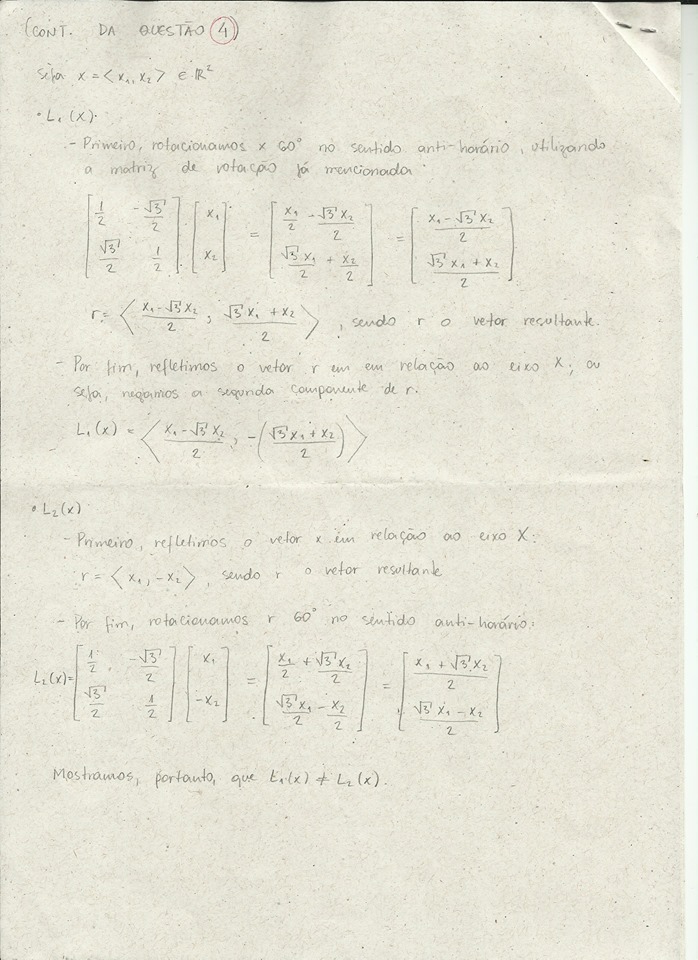 (CONT. DA QUESTÃO 4)
Seja x = <x₁, x₂> ∈ ℝ²
• L₁(x).
- Primeiro, rotacionamos x 60° no sentido anti-horário, utilizando
a matriz de rotação já mencionada
[1/2 -√3/2; √3/2 1/2] · [x₁; x₂] = [x₁/2 - √3x₂/2; √3x₁/2 + x₂/2] = [(x₁-√3x₂)/2; (√3x₁+x₂)/2]
r = <(x₁-√3x₂)/2 ; (√3x₁+x₂)/2>, sendo r o vetor resultante.
- Por fim, refletimos o vetor r em em relação ao eixo X; ou
seja, negamos a segunda componente de r.
L₁(x) = <(x₁-√3x₂)/2 ; -((√3x₁+x₂)/2)>
• L₂(x)
- Primeiro, refletimos o vetor x em relação ao eixo X:
r = <x₁, -x₂>, sendo r o vetor resultante
- Por fim, rotacionamos r 60° no sentido anti-horário:
L₂(x) = [1/2 -√3/2; √3/2 1/2] [x₁; -x₂] = [x₁/2 + √3x₂/2; √3x₁/2 - x₂/2] = [(x₁+√3x₂)/2; (√3x₁-x₂)/2]
Mostramos, portanto, que L₁(x) ≠ L₂(x).